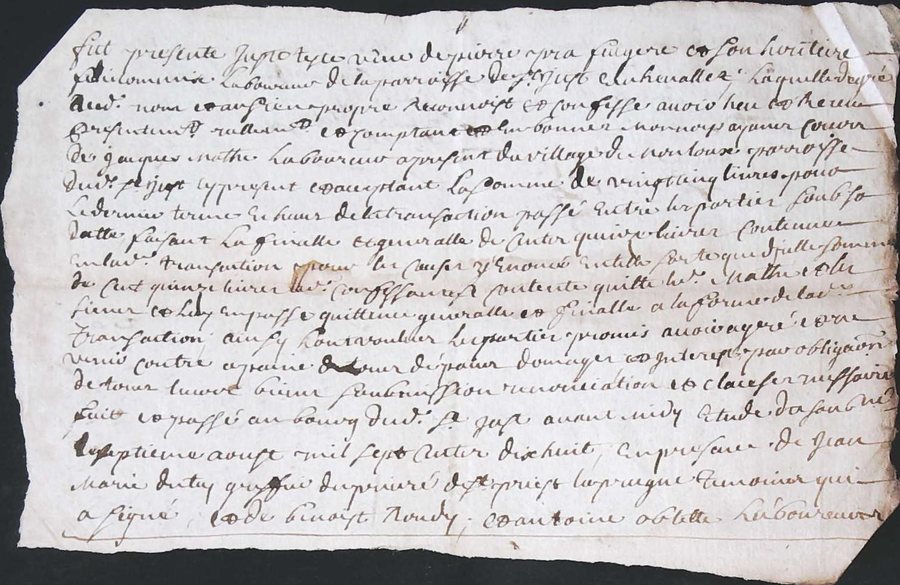 fut presente Just teste veuve de pierre pra fugere et son heritiere
fideicommix Laboureur de la parroisse de St Just en chevallet Laquelle de gré
aud. nom et au sien propre Reconnoist et Confesse avoir heu et Receu
presentemt reallemt et comptant et en bonnes monnoys ayant cours
de jacques mathe Laboureur a present du village de parroisse
dud. St just icy present et aceptant La somme de vingt cinq livres pour
Le dernier terme Echeue de la transaction passé Entre les parties soub sa
datte faisant La finalle et generalle de Cent quinze livres Contenue
en lad. transaction pour les Causes y Enoncé En telle sorte que d'jcelle somme
de Cent quinze livres lad. Confessante se Contente quitte led. Mathe et les
siens et Leur en passe quittence generalle et finalle a la forme de lad.
transaction ainsy Lont voulu les parties promis avoir agreé et ne
venir contre a paine de tous dépans domages et Interest par obligaon
de tous leurs biens soubmission renonciation et clauses necessaire
fait et passé au bourg dud. St Just avant midy Etude du soubné
Le septieme aoust mil sept Cents dixhuit, en presance de Jean
Marie greffier du prieuré de St priest laprugne temoins qui
a signé, et de benoist Rondy, et antoine oblette Laboureurs